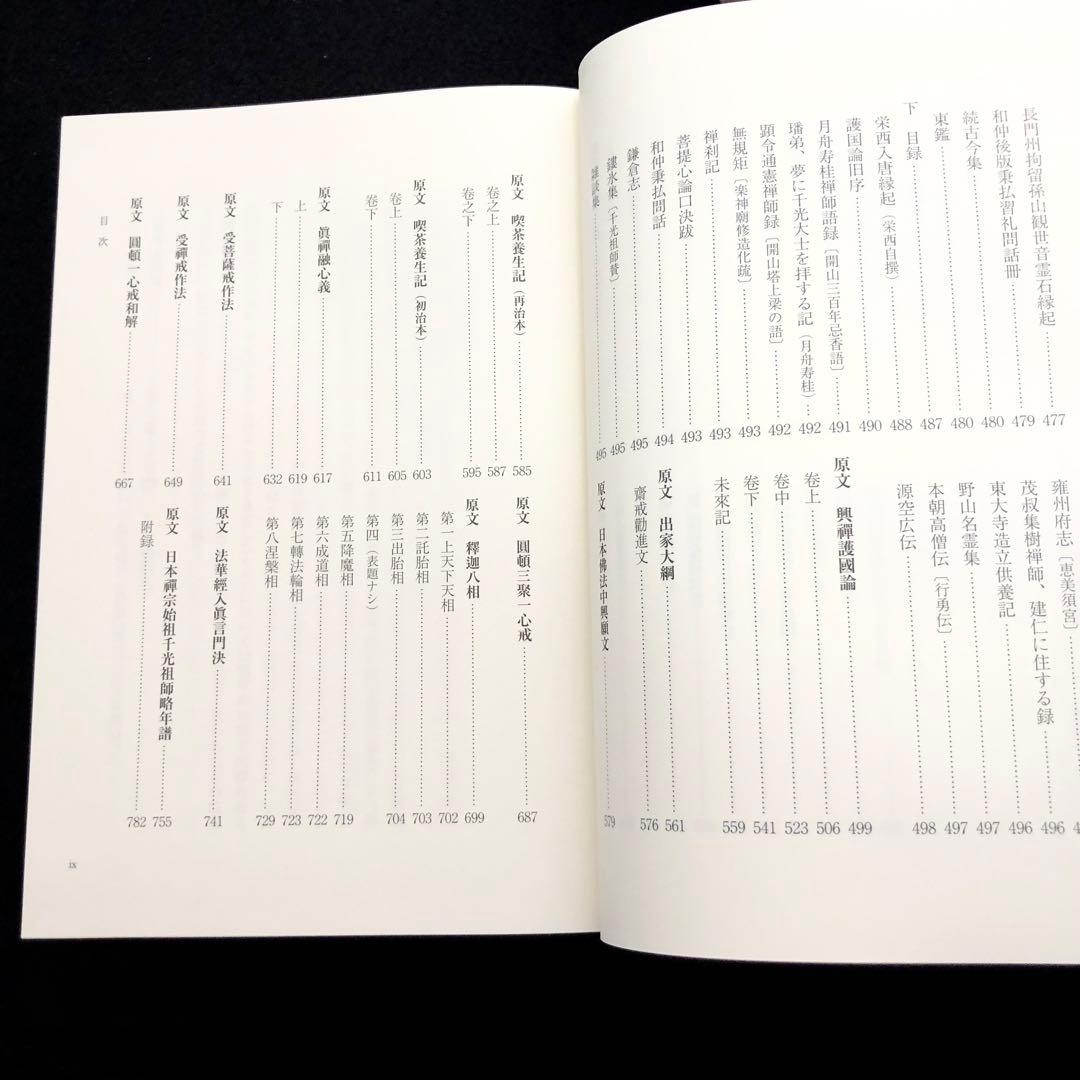 長門州拘留孫山観世音霊石縁起 477
和仲後版秉払習礼問話冊 479
続古今集 480
東鑑 480
下 目録 487
栄西入唐縁起(栄西自撰) 488
護国論旧序 490
月舟寿桂禅師語録〔開山三百年忌香語〕 491
璠弟、夢に千光大士を拝する記(月舟寿桂) 492
顕令通憲禅師録〔開山塔上梁の語〕 492
無規矩〔楽神廟修造化疏〕 493
禅刹記 493
菩提心論口決跋 493
和仲秉払問話 494
鎌倉志 495
鏤氷集〔千光祖師賛〕 495
雑談集 495
雍州府志〔恵美須宮〕
茂叔集樹禅師、建仁に住する録 496
東大寺造立供養記 496
野山名霊集 497
本朝高僧伝〔行勇伝〕 497
源空広伝 498
原文 興禪護國論 499
巻上 506
巻中 523
巻下 541
未來記 559
原文 出家大綱 561
齋戒勸進文 576
原文 日本佛法中興願文 579
原文 喫茶養生記(再治本) 585
巻之上 587
巻之下 595
原文 喫茶養生記(初治本) 603
巻上 605
巻下 611
原文 眞禪融心義 617
上 619
下 632
原文 受菩薩戒作法 641
原文 受禪戒作法 649
原文 圓頓一心戒和解 667
原文 圓頓三聚一心戒 687
原文 釋迦八相 699
第一上天下天相 702
第二託胎相 703
第三出胎相 704
第四(表題ナシ)
第五降魔相 719
第六成道相 722
第七轉法輪相 723
第八涅槃相 729
原文 法華經入眞言門決 741
原文 日本禪宗始祖千光祖師略年譜 755
附録 782
目次
ix